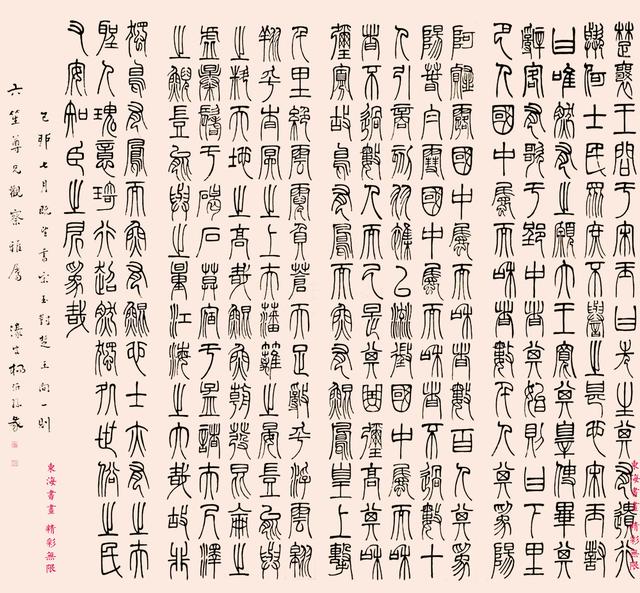 楚襄王問于宋玉曰先生其有遺行
與何士民眾庶不譽之甚也宋玉對
曰唯然有之願大王寬其辠使畢其
辭客有歌于郢中者其始則曰下里
巴人國中屬而和者數千人其為陽
阿薤露國中屬而和者數百人其為
陽春白雪國中屬而和者不過數十
人引商刻羽雜以流徵國中屬而和
者不過數人而已是其曲彌高其和
彌寡故鳥有鳳而魚有鯤鳳皇上擊
九里絕雲霓負蒼天足亂乎浮雲翱
翔乎杳冥之上夫藩籬之鷃豈能與
之料天地之高哉鯤魚朝發昆侖之
虛暴鬐于碣石暮宿于孟諸夫尺澤
之鯢豈能與之量江海之大哉故非
獨鳥有鳳而魚有鯤也士亦有之夫
聖人瑰意琦行超然獨処世俗之民
又安知臣之所為哉
乙卯七月既望書宋玉對楚王問一則
六笙尊兄觀察雅屬 濠叟楊沂孫篆
東海書畫 精彩無限
東海書畫 精彩無限